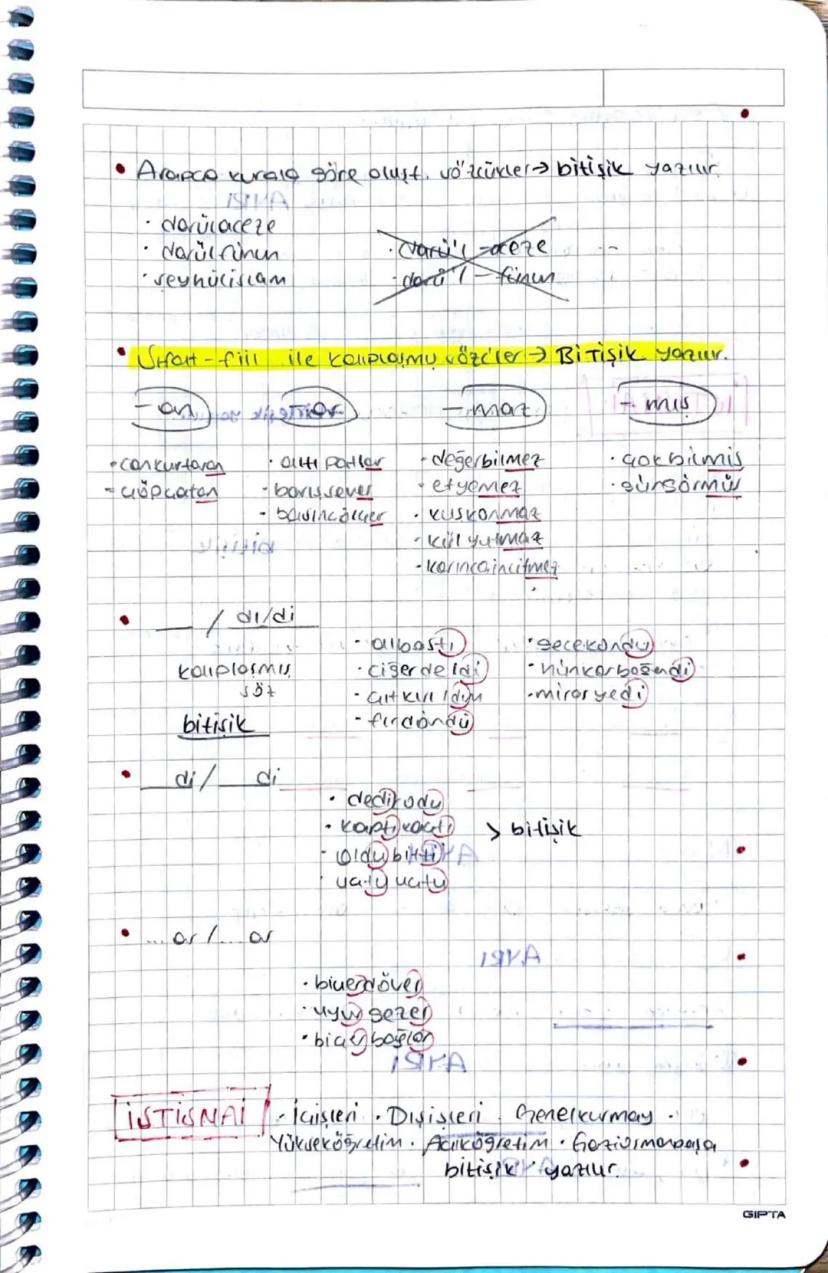 • Arapça kurala göre oluşt. sözcükler → bitişik yazılır.
· darülaceze
· darülfünun
· şeyhülislam
· darü'l-aceze
· darü'l-fünun
• Sıfat-fiil ile kalıplaşmış sözcüler → BİTİŞİK yazılır.
-an -ar -maz -mış
· cankurtaran
- çöpçatan
· altıpatlar
- barışsever
- basınçölçer
· değerbilmez
· etyemez
· kuşkonmaz
· külyutmaz
- karıncaincitmez
· çokbilmiş
· güngörmüş
• ___ / dı/di
kalıplaşmış
söz
bitişik
· albastı
· ciğerdeldi
· çıtkırıldım
· fırdöndü
· gecekondu
· hünkarbeğendi
· mirasyedi
• ___di / ___di
· dedikodu
· kaptıkaçtı
· oldubitti
· uçtuuçtu
> bitişik
• ...ar / ... ar
· biçerdöver
· uyurgezer
· biçerbağlar
İSTİSNAİ
· İçişleri · Dışişleri · Genelkurmay ·
Yükseköğretim · Açıköğretim · Gaziosmanpaşa
bitişik yazılır.
GIPTA